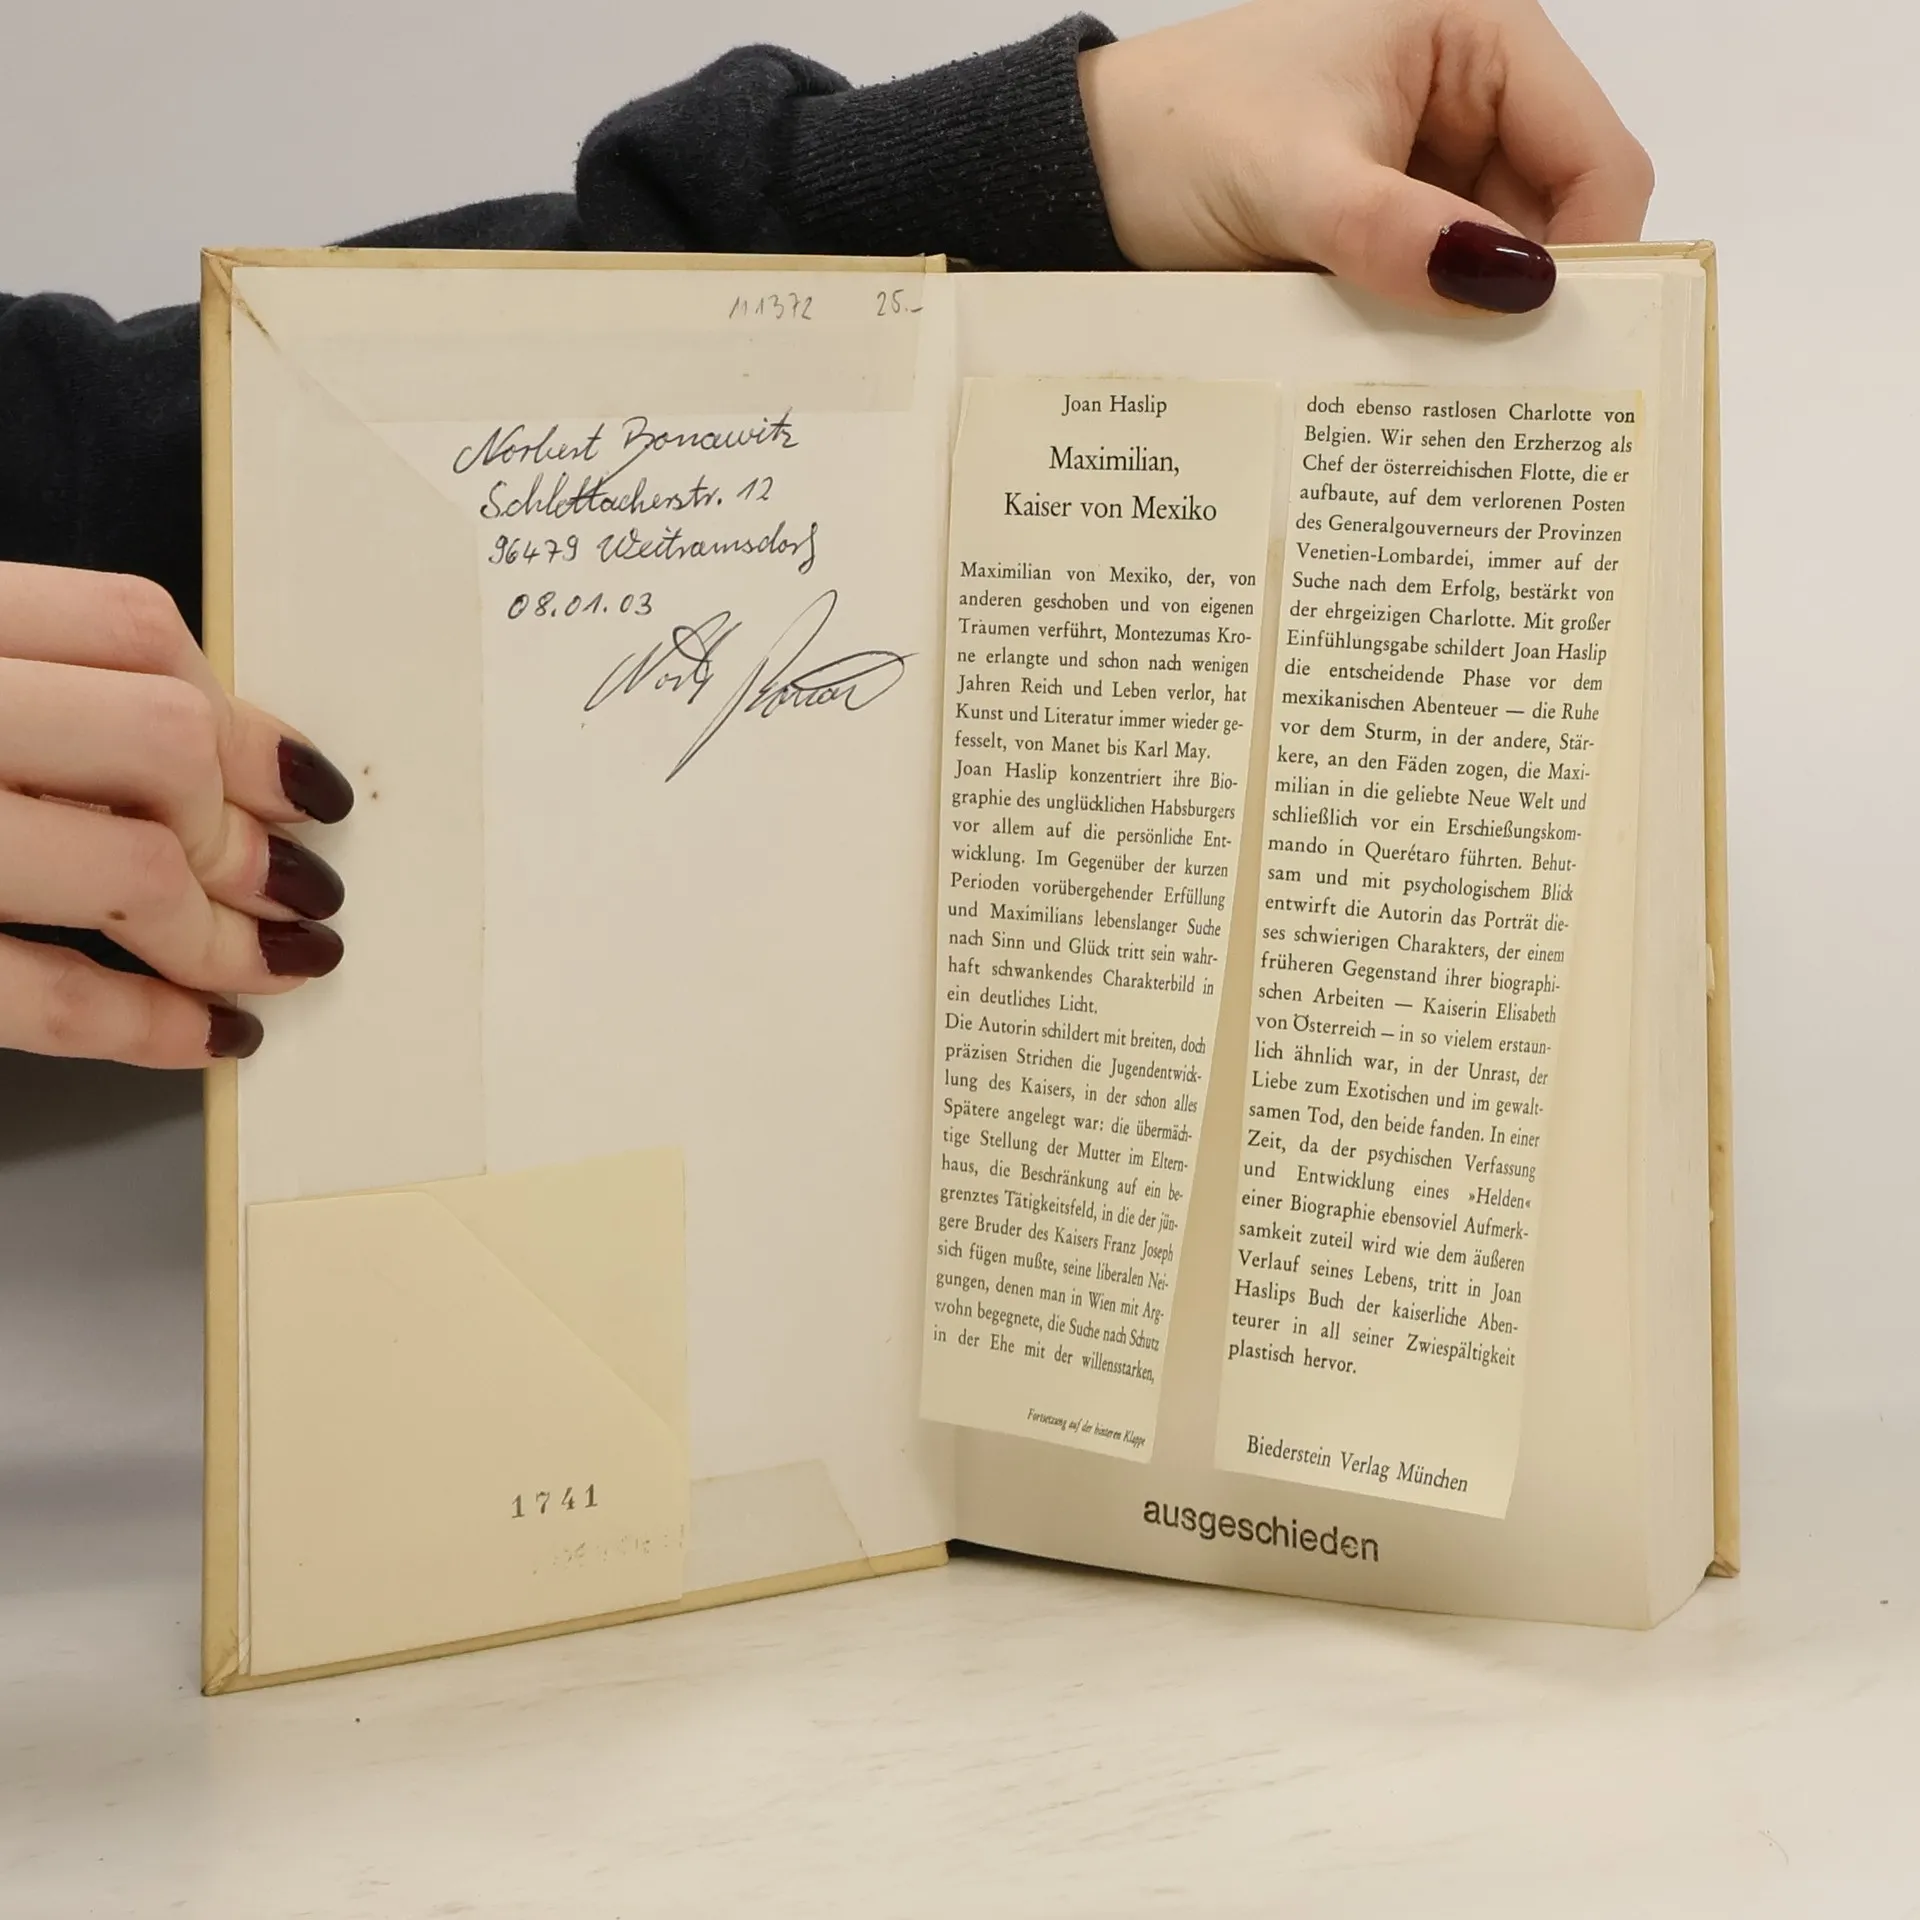 11372 25.-
Norbert Bonawitz
Schlettacherstr. 12
96479 Weitramsdorf
08.01.03
1741
Joan Haslip
Maximilian,
Kaiser von Mexiko
Maximilian von Mexiko, der, von
anderen geschoben und von eigenen
Träumen verführt, Montezumas Kro-
ne erlangte und schon nach wenigen
Jahren Reich und Leben verlor, hat
Kunst und Literatur immer wieder ge-
fesselt, von Manet bis Karl May.
Joan Haslip konzentriert ihre Bio-
graphie des unglücklichen Habsburgers
vor allem auf die persönliche Ent-
wicklung. Im Gegenüber der kurzen
Perioden vorübergehender Erfüllung
und Maximilians lebenslanger Suche
nach Sinn und Glück tritt sein wahr-
haft schwankendes Charakterbild in
ein deutliches Licht.
Die Autorin schildert mit breiten, doch
präzisen Strichen die Jugendentwick-
lung des Kaisers, in der schon alles
Spätere angelegt war: die übermäch-
tige Stellung der Mutter im Eltern-
haus, die Beschränkung auf ein be-
grenztes Tätigkeitsfeld, in die der jün-
gere Bruder des Kaisers Franz Joseph
sich fügen mußte, seine liberalen Nei-
gungen, denen man in Wien mit Arg-
wohn begegnete, die Suche nach Schutz
in der Ehe mit der willensstarken,
Fortsetzung auf der hinteren Klappe
doch ebenso rastlosen Charlotte von
Belgien. Wir sehen den Erzherzog als
Chef der österreichischen Flotte, die er
aufbaute, auf dem verlorenen Posten
des Generalgouverneurs der Provinzen
Venetien-Lombardei, immer auf der
Suche nach dem Erfolg, bestärkt von
der ehrgeizigen Charlotte. Mit großer
Einfühlungsgabe schildert Joan Haslip
die entscheidende Phase vor dem
mexikanischen Abenteuer — die Ruhe
vor dem Sturm, in der andere, Stär-
kere, an den Fäden zogen, die Maxi-
milian in die geliebte Neue Welt und
schließlich vor ein Erschießungskom-
mando in Querétaro führten. Behut-
sam und mit psychologischem Blick
entwirft die Autorin das Porträt die-
ses schwierigen Charakters, der einem
früheren Gegenstand ihrer biographi-
schen Arbeiten — Kaiserin Elisabeth
von Österreich — in so vielem erstaun-
lich ähnlich war, in der Unrast, der
Liebe zum Exotischen und im gewalt-
samen Tod, den beide fanden. In einer
Zeit, da der psychischen Verfassung
und Entwicklung eines »Helden«
einer Biographie ebensoviel Aufmerk-
samkeit zuteil wird wie dem äußeren
Verlauf seines Lebens, tritt in Joan
Haslips Buch der kaiserliche Aben-
teurer in all seiner Zwiespältigkeit
plastisch hervor.
Biederstein Verlag München
ausgeschieden